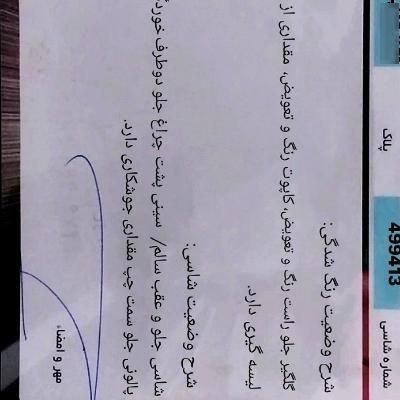 پلاک
شماره شاسی
499413
شرح وضعیت رنگ شدگی:
گلگیر جلو راست رنگ و تعویض، کاپوت رنگ و تعویض، مقداری از
لیسه گیری دارد.
شرح وضعیت شاسی:
شاسی جلو و عقب سالم/ سینی پشت چراغ جلو دوطرف
پالونی جلو سمت چپ مقداری جوشکاری دارد.
مهر و امضاء